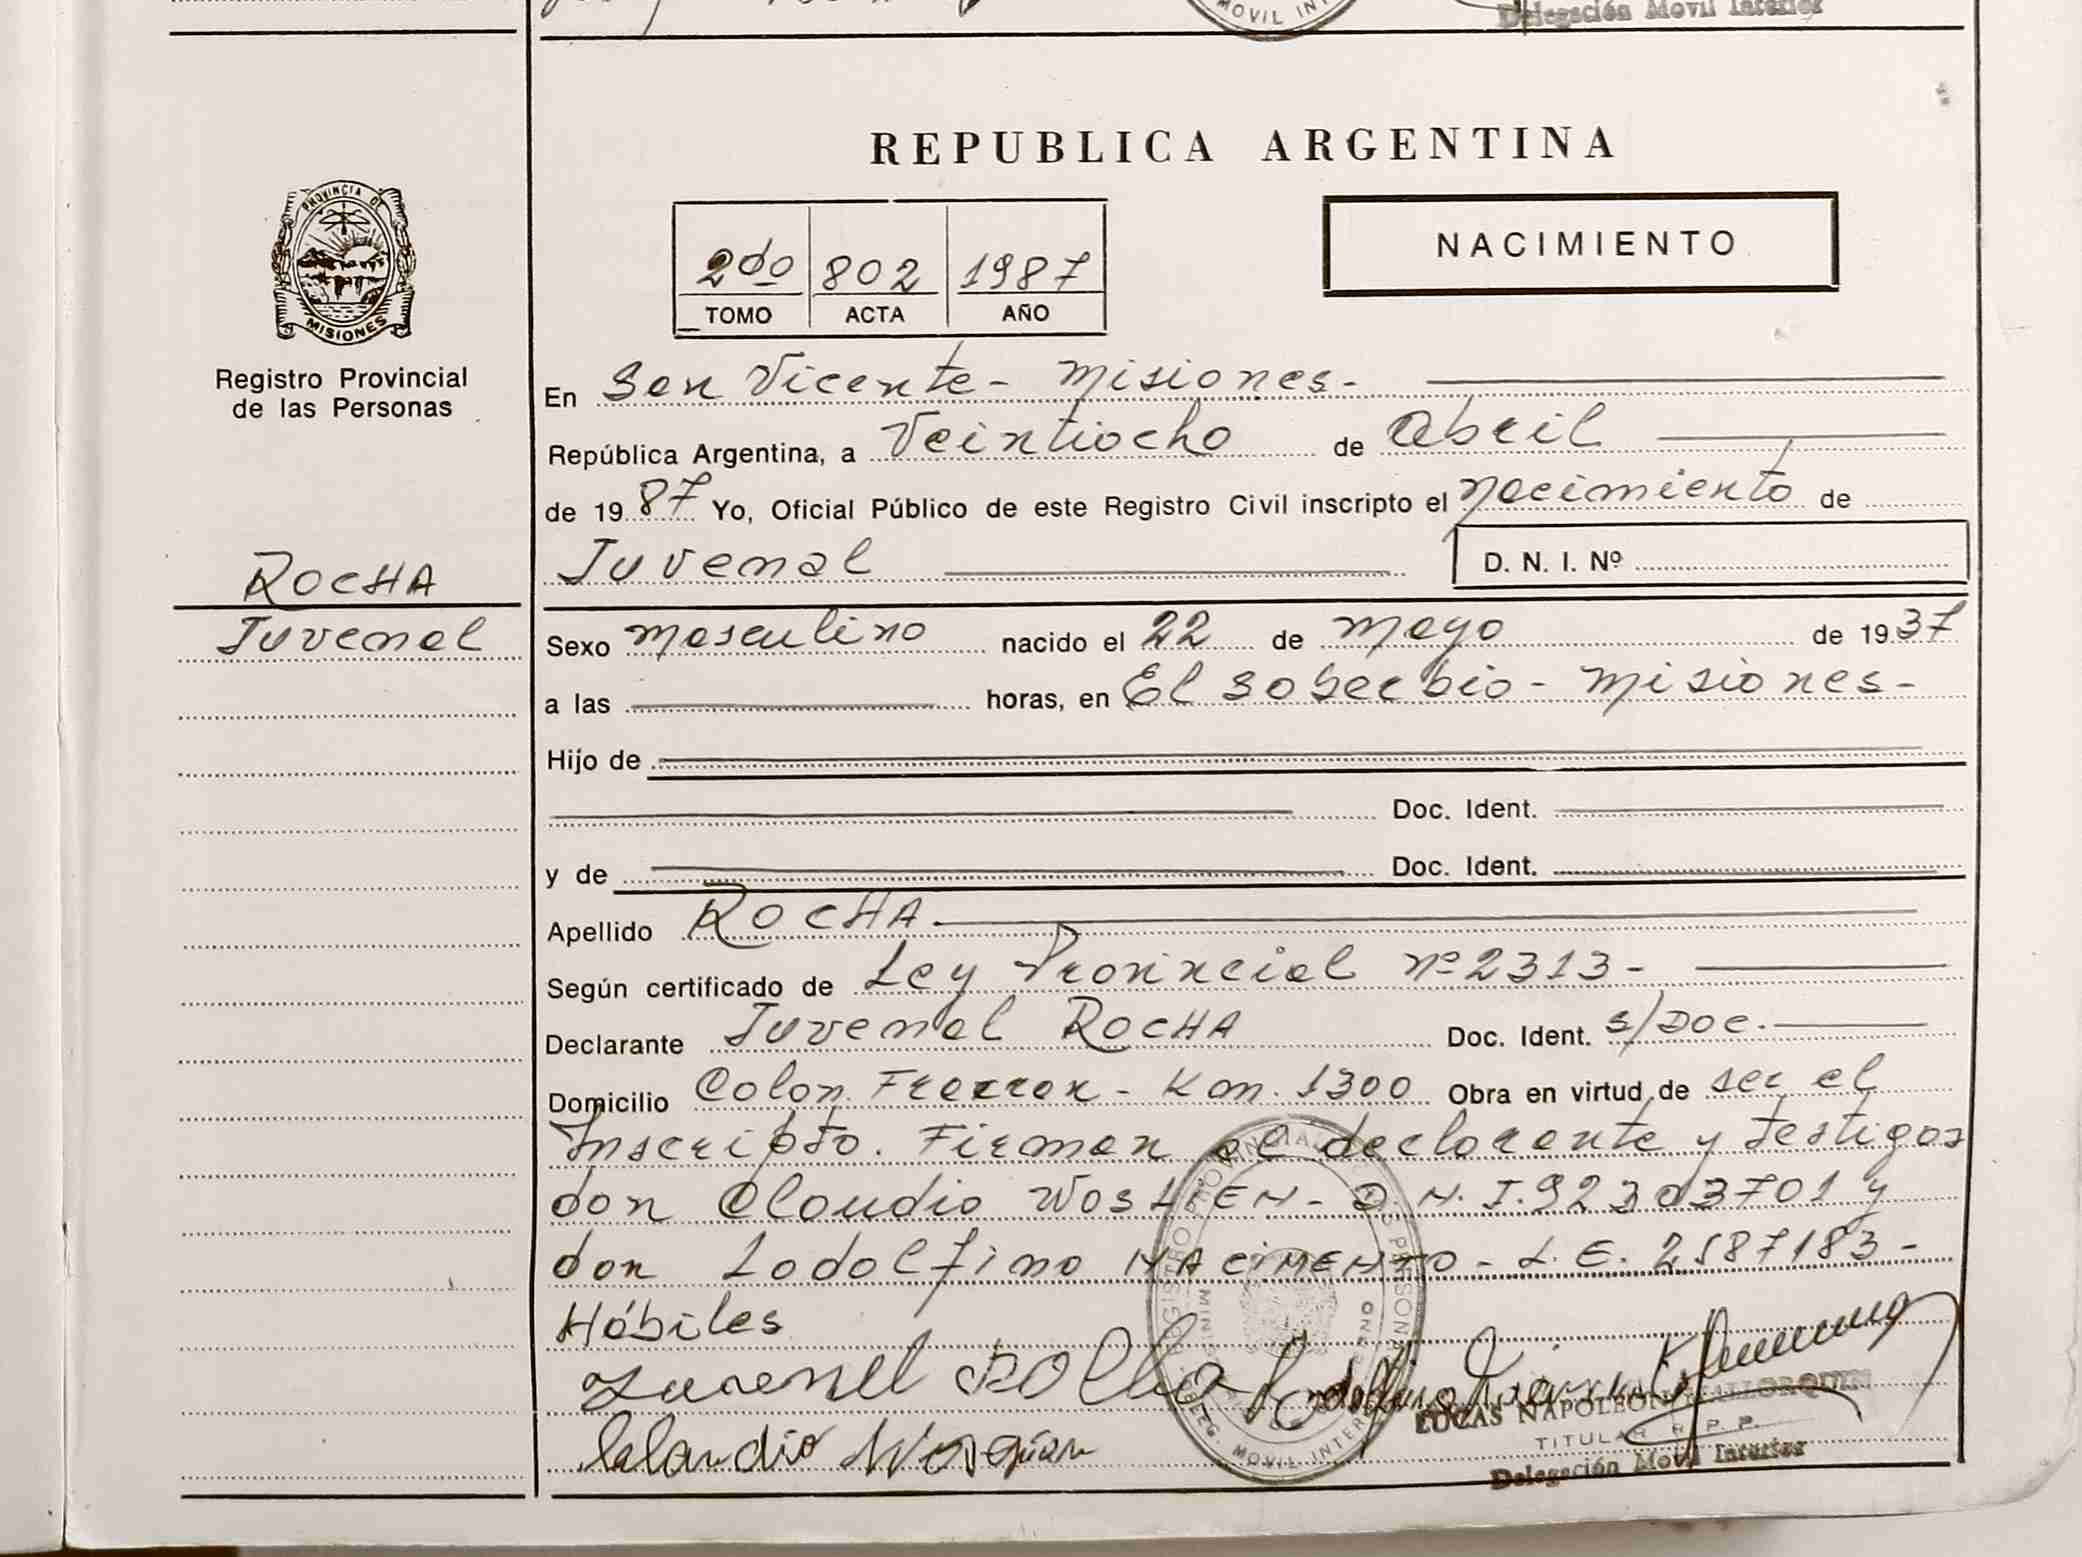 MOVIL INT
Delegación Movil Interior
REPUBLICA ARGENTINA
PROVINCIA DE
MISIONES
Registro Provincial
de las Personas
2do 802 1987
TOMO ACTA AÑO
NACIMIENTO
En San Vicente - Misiones-
República Argentina, a Veintiocho de abril
de 1987 Yo, Oficial Público de este Registro Civil inscripto el nacimiento de
Juvenal D. N. I. Nº
ROCHA
Juvenal
Sexo masculino nacido el 22 de mayo de 1937
a las horas, en El Soberbio - Misiones-
Hijo de
Doc. Ident.
y de Doc. Ident.
Apellido ROCHA
Según certificado de Ley Provincial nº 2313-
Declarante Juvenal ROCHA Doc. Ident. s/Doc.
Domicilio Colon. Frecran - Km. 1300 Obra en virtud de ser el
Inscripto. Firman el declarante y testigos
don Claudio D.N.I. 92303701 y
don Lodolfino NACIMENTO - L.E. 2587183-
Hábiles
Juvenel Rocha
LUCAS NAPOLEON MALLORQUIN
TITULAR R.P.P.
Delegación Movil Interior
REGISTRO PROVINCIAL DE LAS PERSONAS
DELEG. MOVIL INTERIOR